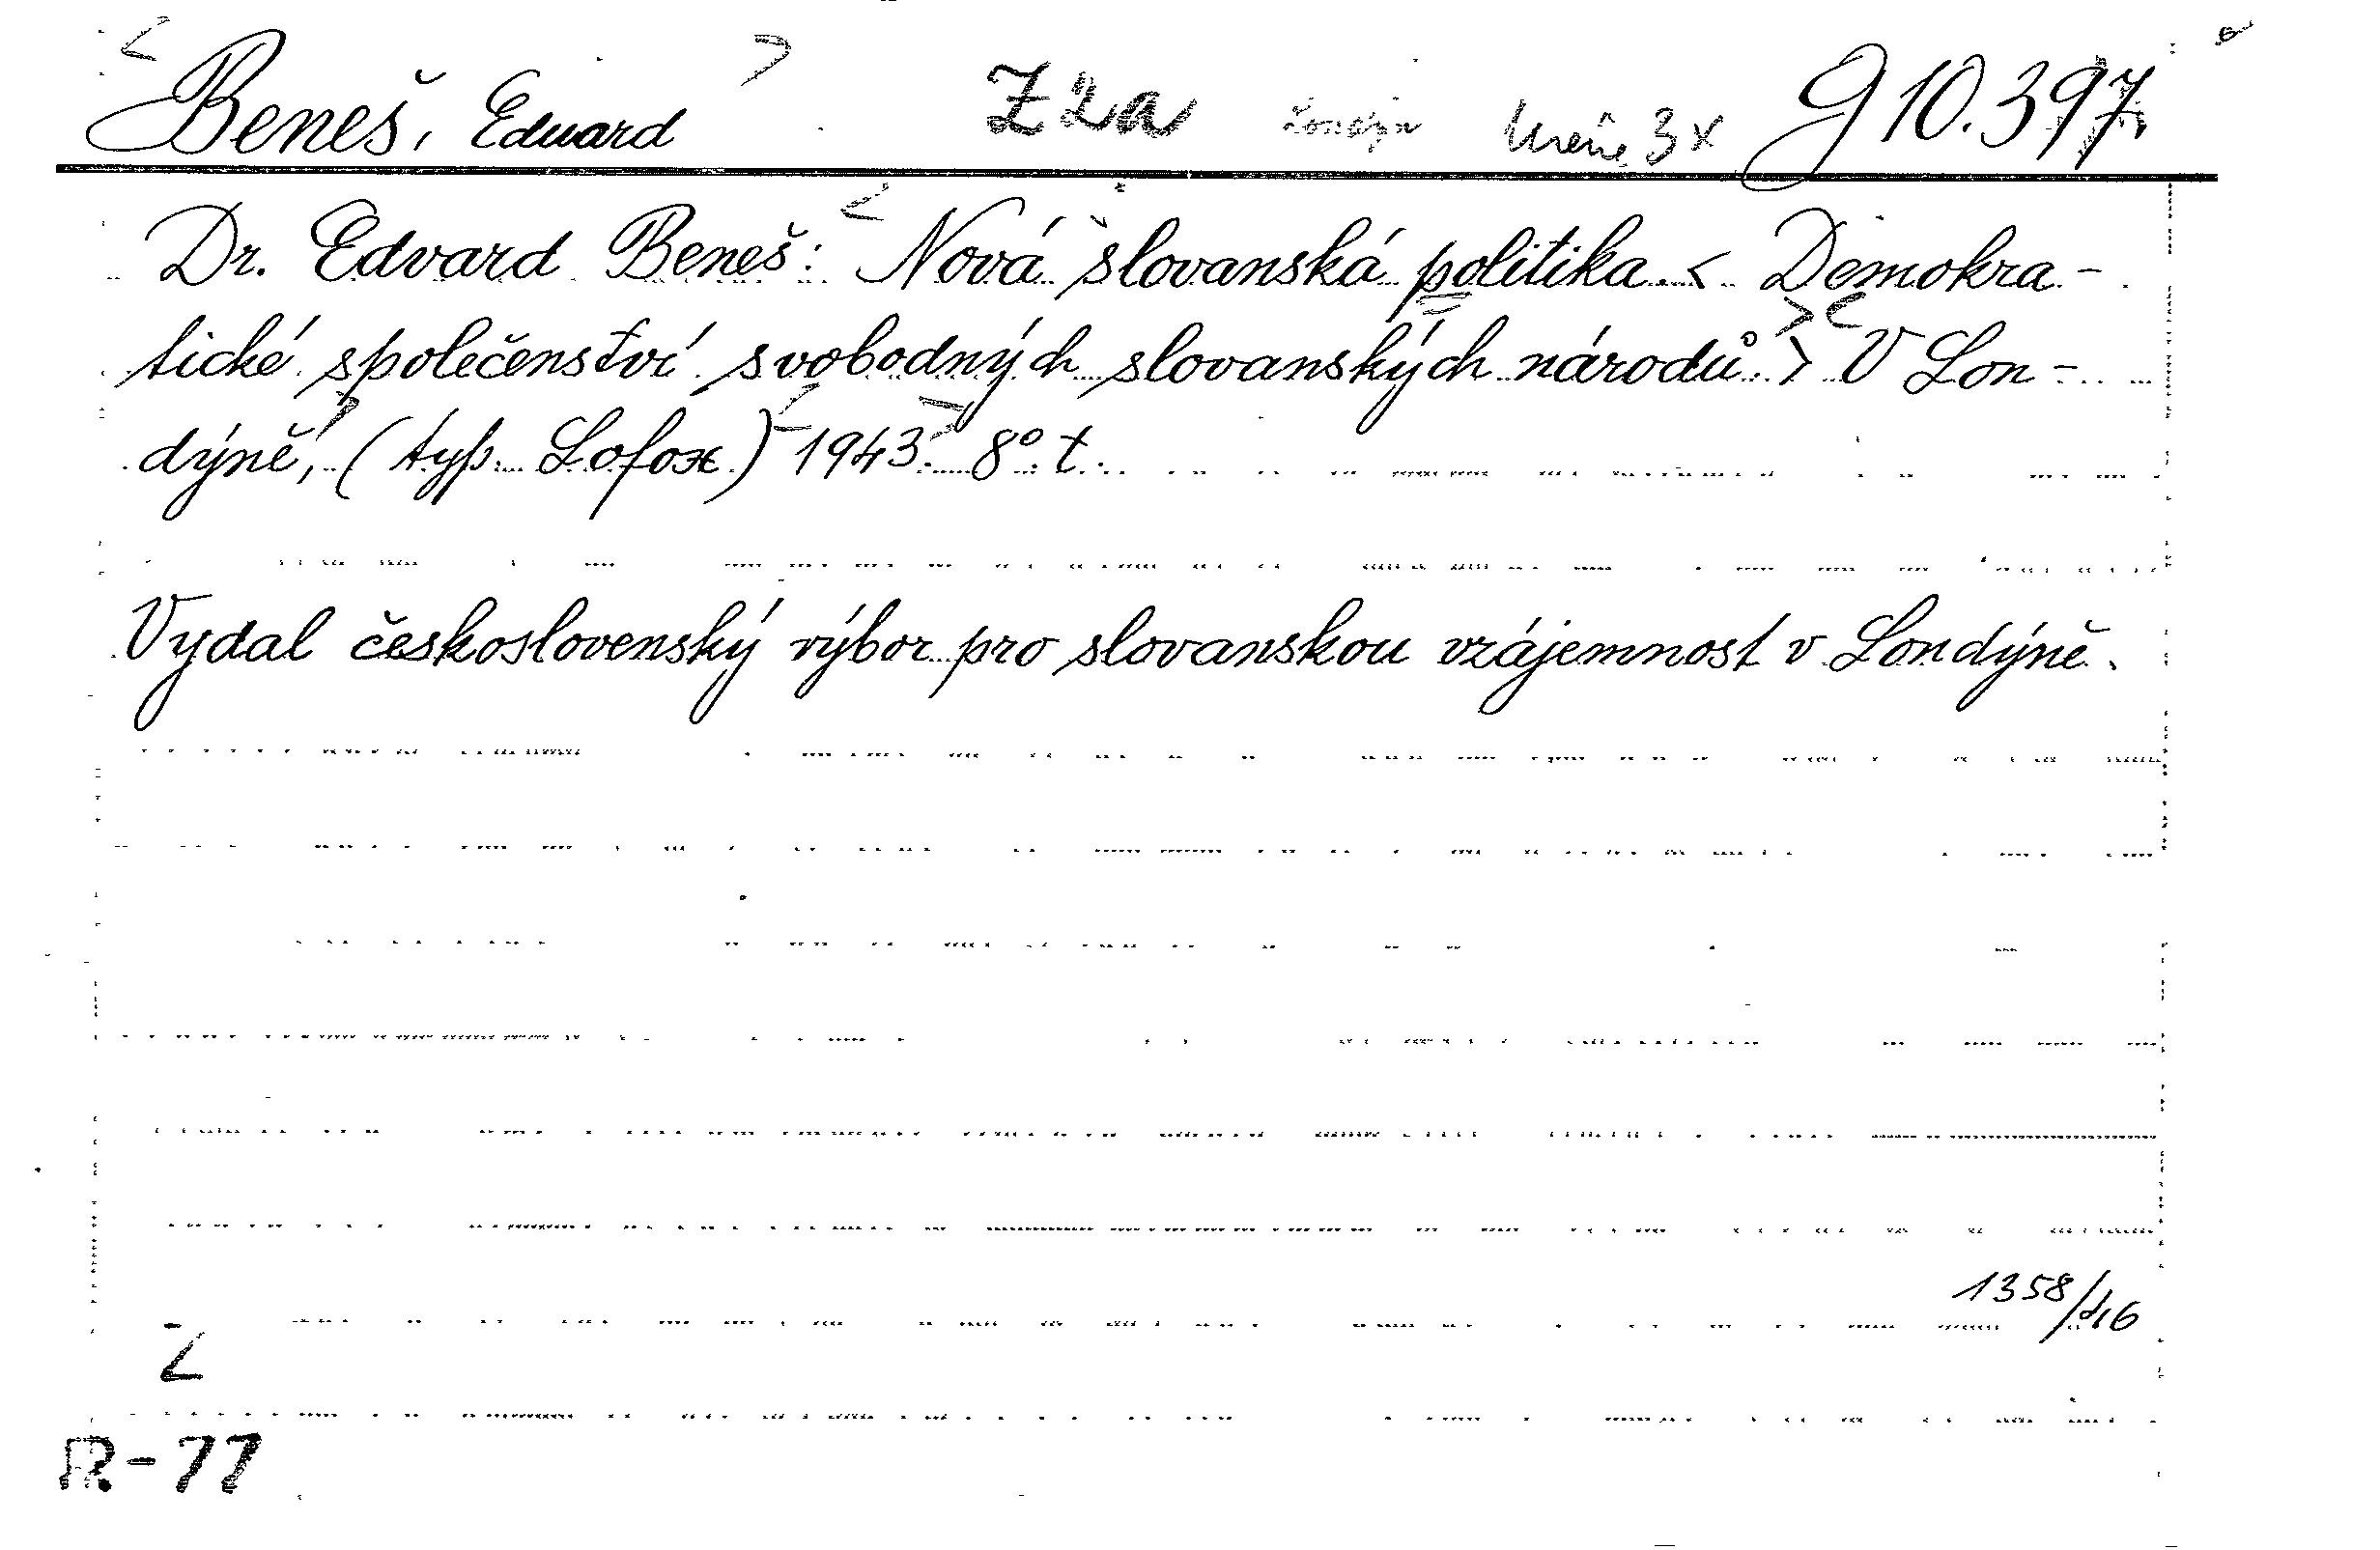 Beneš, Eduard Z 2a Londýn 3x g 10.397.
Dr. Edvard Beneš: Nová slovanská politika. < Demokra-
tické společenství svobodných slovanských národů. > V Lon-
dýně, (typ. Lofox.) 1943. 8° t.
Vydal československý výbor pro slovanskou vzájemnost v Londýně.
1358/46
Z
R-77